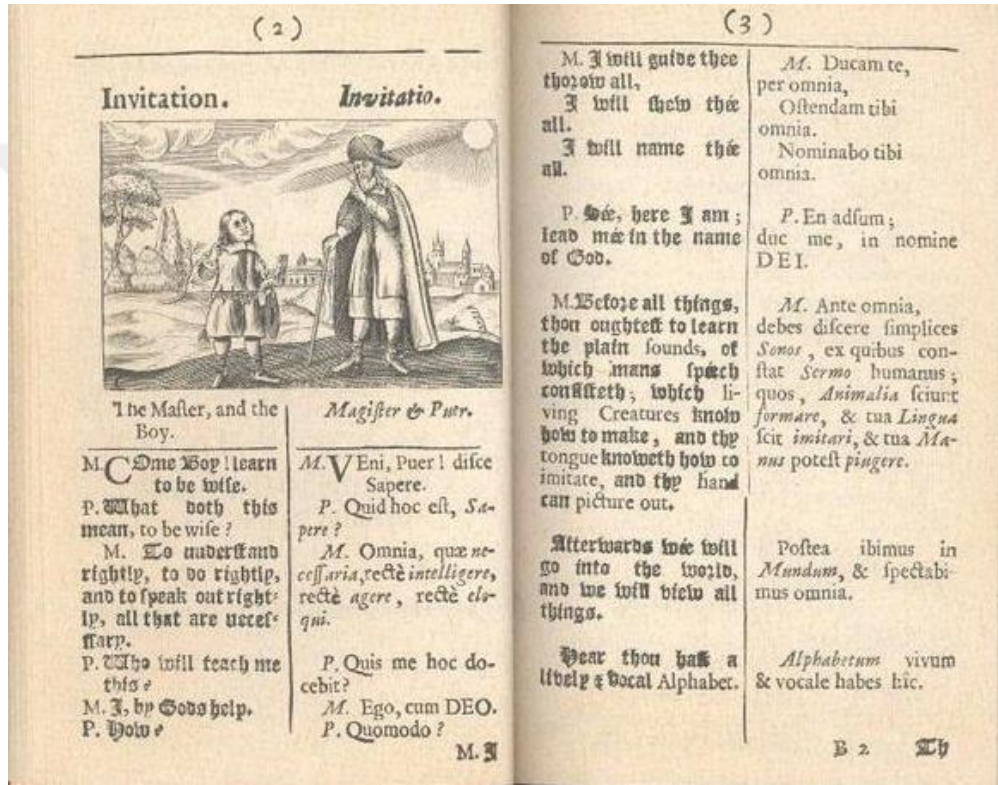 (2)
Invitation.
Invitatio.
The Maſter, and the
Boy.
M. COme Boy! learn
to be wiſe.
P. What doth this
mean, to be wiſe?
M. To underſtand
rightly, to do rightly,
and to ſpeak out right-
ly, all that are neceſ-
ſary.
P. Who will teach me
this?
M. I, by Gods help.
P. How?
Magiſter & Puer.
M. VEni, Puer! diſce
Sapere.
P. Quid hoc eſt, Sa-
pere?
M. Omnia, quæ ne-
ceſſaria, rectè intelligere,
rectè agere, rectè elo-
qui.
P. Quis me hoc do-
cebit?
M. Ego, cum DEO.
P. Quomodo?
M. I
(3)
M. I will guide thee
thorow all,
I will ſhew thée
all.
I will name thée
all.
P. Sée, here I am;
lead mée in the name
of God.
M. Before all things,
thou oughteſt to learn
the plain ſounds, of
which mans ſpéech
conſiſteth; which li-
ving Creatures know
how to make, and thy
tongue knoweth how to
imitate, and thy hand
can picture out.
Afterwards wée will
go into the world,
and we will view all
things.
Hear thou haſt a
lively & Vocal Alphabet.
M. Ducam te,
per omnia,
Oſtendam tibi
omnia.
Nominabo tibi
omnia.
P. En adſum;
duc me, in nomine
DEI.
M. Ante omnia,
debes diſcere ſimplices
Sonos, ex quibus con-
ſtat Sermo humanus;
quos, Animalia ſciunt
formare, & tua Lingua
ſcit imitari, & tua Ma-
nus poteſt pingere.
Poſtea ibimus in
Mundum, & ſpectabi-
mus omnia.
Alphabetum vivum
& vocale habes hîc.
B 2
Th